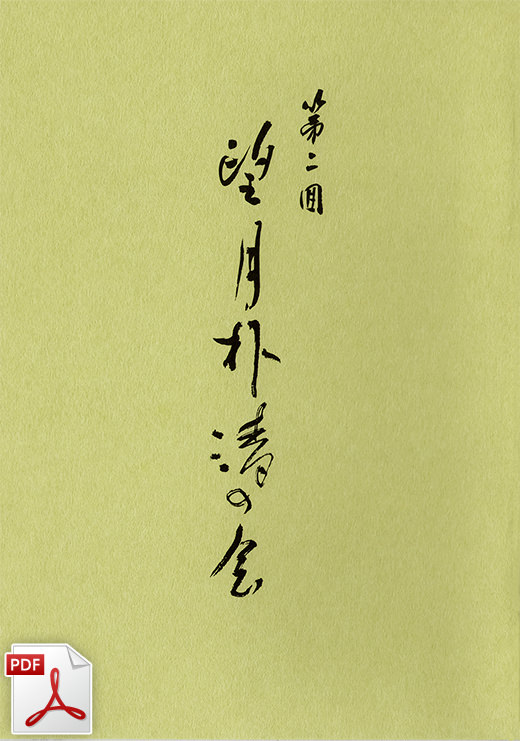 第二回
望月朴清の会
PDF